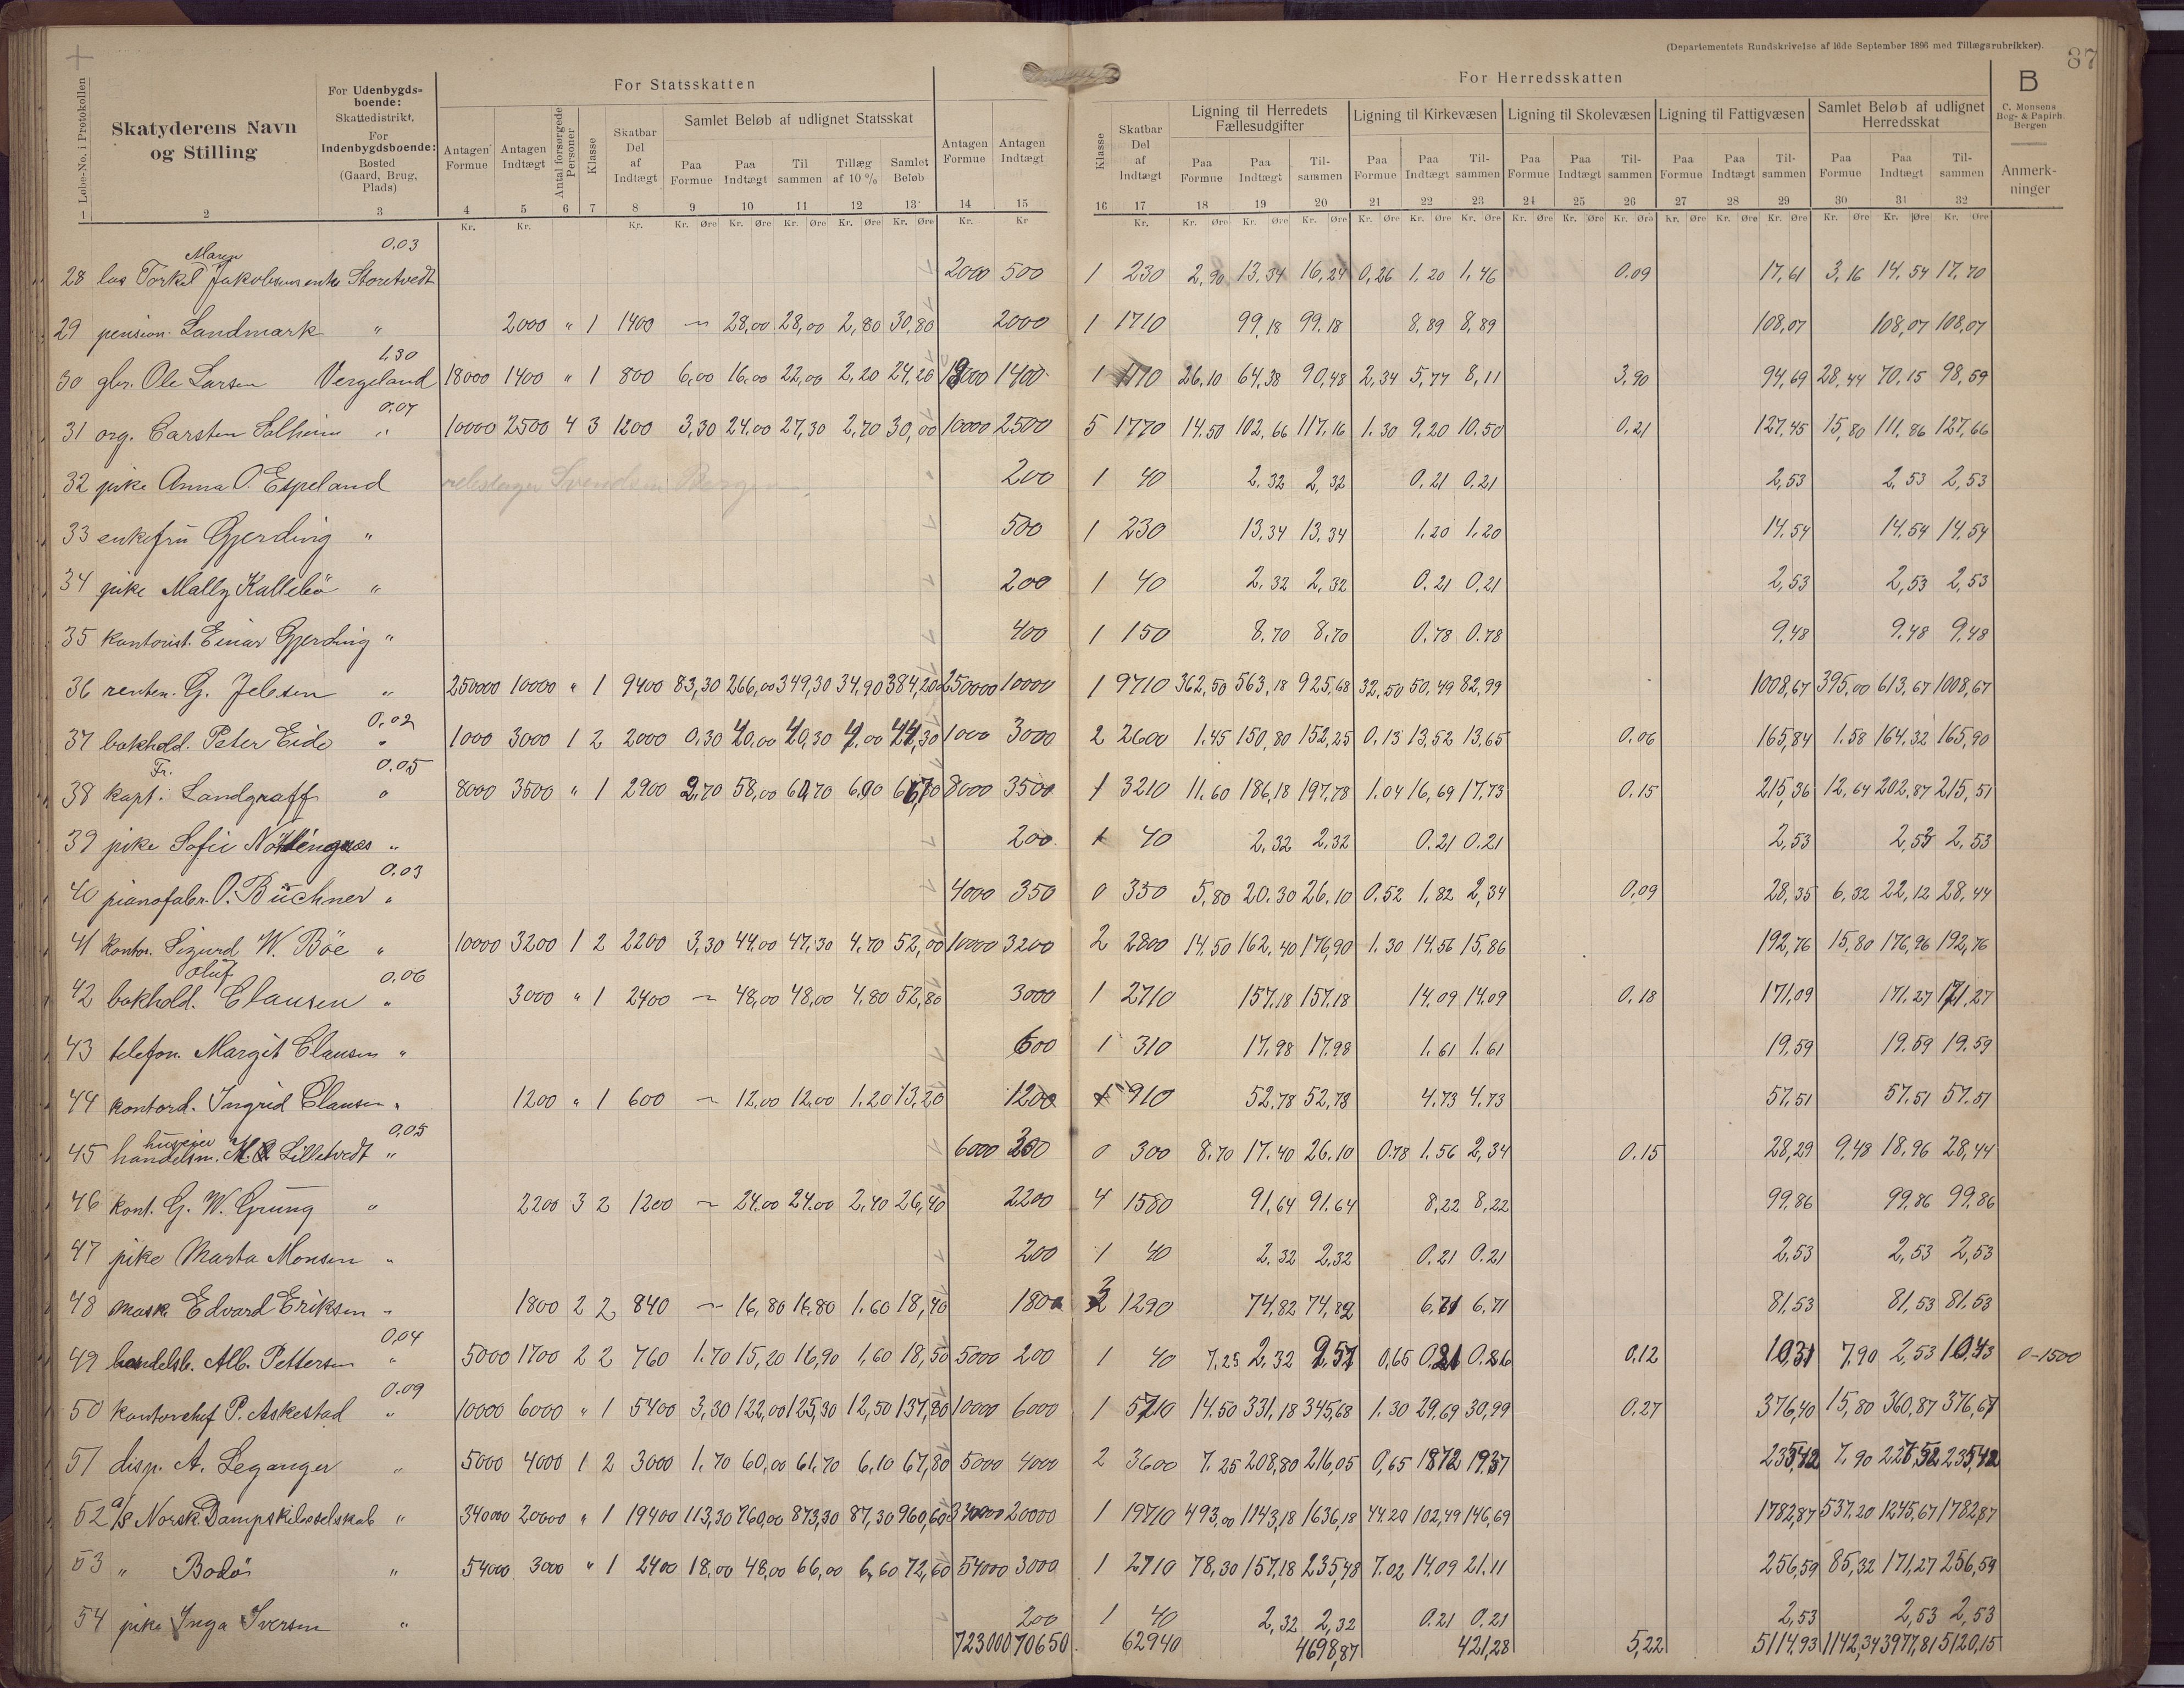 (Departementets Rundskrivelse af 16de September 1896 med Tillægsrubrikker). 87
For Statsskatten
For Herredsskatten
B
C. Monsens Bog- & Papirh. Bergen
Anmerkninger
Løbe-No. i Protokollen
Skatyderens Navn og Stilling
For Udenbygdsboende: Skattedistrikt. For Indenbygdsboende: Bosted (Gaard, Brug, Plads)
Antagen Formue Antagen Indtægt Antal forsørgede Personer Klasse Skatbar Del af Indtægt
Samlet Beløb af udlignet Statsskat
Paa Formue Paa Indtægt Til sammen Tillæg af 10 % Samlet Beløb
Antagen Formue Antagen Indtægt Klasse Skatbar Del af Indtægt
Ligning til Herredets Fællesudgifter Ligning til Kirkevæsen Ligning til Skolevæsen Ligning til Fattigvæsen Samlet Beløb af udlignet Herredsskat
Paa Formue Paa Indtægt Tilsammen Paa Formue Paa Indtægt Tilsammen Paa Formue Paa Indtægt Tilsammen Paa Formue Paa Indtægt Tilsammen Paa Formue Paa Indtægt Tilsammen
1 2 3 4 5 6 7 8 9 10 11 12 13 14 15 16 17 18 19 20 21 22 23 24 25 26 27 28 29 30 31 32
Maren 0.03
28 Torkel Jakobsens enke Storetvedt 2000 500 1 230 2,90 13,34 16,24 0,26 1,20 1,46 0.09 17,61 3,16 14,54 17,70
29 pension. Landmark " 2000 " 1 1400 — 28,00 28,00 2,80 30,80 2000 1 1710 99,18 99,18 8,89 8,89 108,07 108,07 108,07
1.30
30 gbr. Ole Larsen Vergeland 18000 1400 " 1 800 6,00 16,00 22,00 2,20 24,20 18000 1400 1 1110 26,10 64,38 90,48 2,34 5,77 8,11 3,90 94,69 28,44 70,15 98,59
0.07
31 org. Carsten Solheim " 10000 2500 4 3 1200 3,30 24,00 27,30 2,70 30,00 10000 2500 5 1770 14.50 102,66 117,16 1.30 9.20 10.50 0.21 127,45 15,80 111,86 127,66
32 pike Anna O. Espeland Svendsen Bergen 200 1 40 2,32 2,32 0.21 0.21 2,53 2,53 2,53
33 enkefru Gjerding " 500 1 230 13,34 13,34 1,20 1,20 14,54 14,54 14,54
34 pike Mally Kallebö " 200 1 40 2,32 2,32 0.21 0.21 2,53 2,53 2,53
35 kontorist. Einar Gjerding " 400 1 150 8.70 8.70 0.78 0.78 9,48 9,48 9,48
36 renten. G. Jebsen " 250000 10000 " 1 9400 83,30 266,00 349,30 34,90 384,20 250000 10000 1 9710 362,50 563,18 925,68 32,50 50,49 82,99 1008,67 395,00 613,67 1008,67
0.02
37 bokhold. Peter Eide " 1000 3000 1 2 2000 0,30 40,00 40,30 4,00 44,30 1000 3000 2 2600 1.45 150,80 152,25 0.13 13,52 13,65 0.06 165,84 1.58 164,32 165,90
Fr. 0.05
38 kapt. Landgraff " 8000 3500 " 1 2900 2,70 58,00 60,70 6,00 66,70 8000 3500 1 3210 11.60 186,18 197,78 1.04 16,69 17,73 0.15 215,36 12,64 202,87 215,51
39 pike Sofie " 200 1 40 2,32 2,32 0.21 0.21 2,53 2,53 2,53
0.03
40 pianofabr. O. Büchner " 4000 350 0 350 5,80 20.30 26,10 0.52 1.82 2,34 0,09 28,35 6,32 22,12 28,44
41 kontor. Sigurd W. Böe " 10000 3200 1 2 2200 3,30 44,00 47,30 4.70 52,00 10000 3200 2 2800 14.50 162,40 176,90 1.30 14.56 15,86 192,76 15,80 176,96 192,76
Oluf 0.06
42 bokhold. Clausen " 3000 " 1 2400 — 48,00 48,00 4.80 52,80 3000 1 2710 157,18 157,18 14.09 14.09 0.18 171,09 171,27 171,27
43 telefon. Margit Clausen " 600 1 310 17,98 17,98 1.61 1.61 19,59 19,59 19,59
44 kontord. Ingrid Clausen " 1200 " 1 600 — 12,00 12,00 1.20 13,20 1200 1 910 52,78 52,78 4.73 4.73 57,51 57,51 57,51
huseier 0.05
45 handelsm. Lilletvedt " 6000 300 0 300 8.70 17.40 26,10 0.78 1.56 2,34 0.15 28,29 9,48 18,96 28,44
46 kont. G. W. Grung " 2200 3 2 1200 — 24,00 24,00 2,40 26,40 2200 4 1580 91,64 91,64 8,22 8,22 99,86 99,86 99,86
47 pike Marta Monsen " 200 1 40 2,32 2,32 0.21 0.21 2,53 2,53 2,53
48 mask. Edvard Eriksen " 1800 2 2 840 — 16,80 16,80 1.60 18,40 1800 3 1290 74,82 74,82 6,71 6,71 81,53 81,53 81,53
0,04
49 handelsb. Alb. Pettersen " 5000 1700 2 2 760 1.70 15,20 16,90 1,60 18,50 5000 200 1 40 7,25 2,32 9,57 0,65 0,21 0.86 0,12 10,31 7,90 2,53 10,43 0-1500
0.09
50 kontorchef P. Askestad " 10000 6000 " 1 5400 3,30 122,00 125,30 12,50 137,80 10000 6000 1 5710 14.50 331,18 345,68 1.30 29,69 30,99 0.27 376,40 15,80 360,87 376,67
51 disp. A. Leganger " 5000 4000 1 2 3000 1.70 60,00 61,70 6,10 67,80 5000 4000 2 3600 7.25 208,80 216,05 0,65 18,72 19,37 235,42 7,90 227,52 235,42
52 a/s Norsk. Dampskibsselskab " 340000 20000 " 1 19400 113,30 760,00 873,30 87,30 960,60 340000 20000 1 19710 493,00 1143,18 1636,18 44.20 102,49 146,69 1782,87 537,20 1245,67 1782,87
53 " Bodö " 54000 3000 " 1 2400 18,00 48,00 66,00 6,60 72,60 54000 3000 1 2710 78,30 157,18 235,48 7.02 14.09 21.11 256,59 85,32 171,27 256,59
54 pike Inga Iversen " 200 1 40 2,32 2,32 0.21 0.21 2,53 2,53 2,53
723000 70650 62940 4698,87 421,28 5,22 5114,93 1142,34 3977,81 5120,15